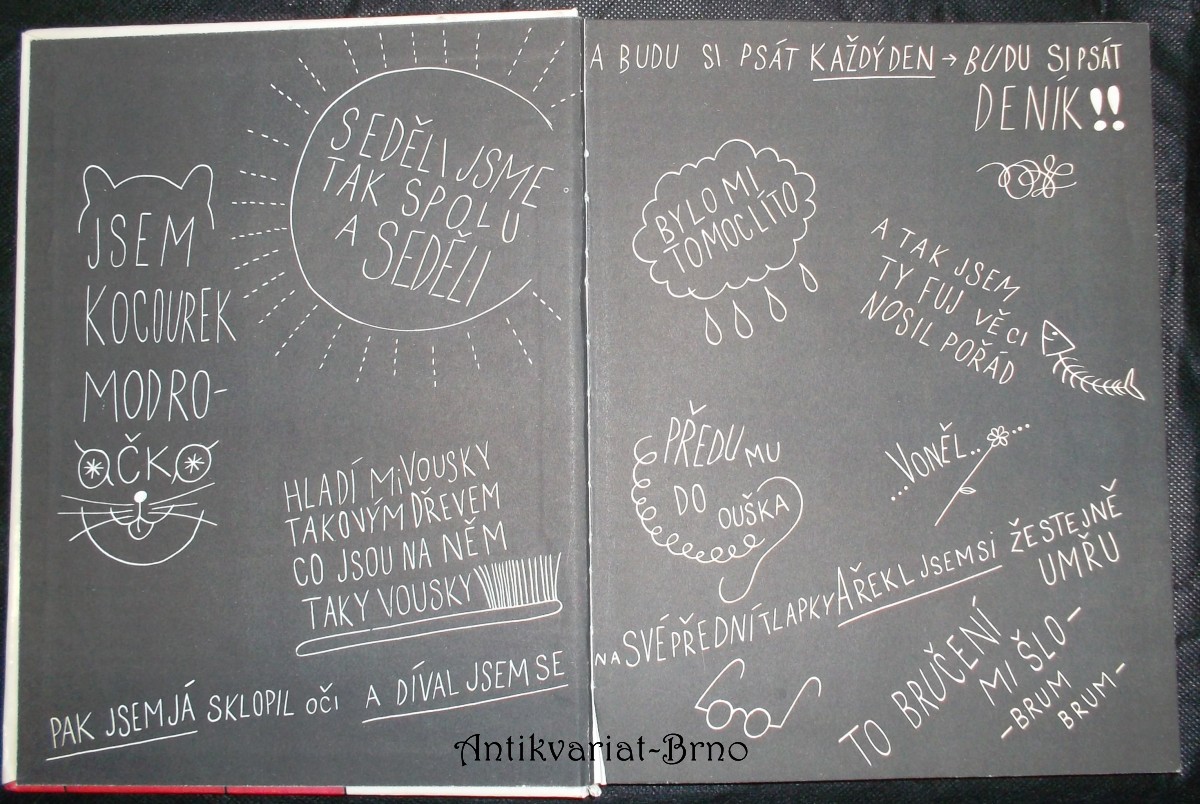 SEDĚLI JSME
TAK SPOLU
A SEDĚLI
JSEM
KOCOUREK
MODRO-
OČKO
HLADÍ MI VOUSKY
TAKOVÝM DŘEVEM
CO JSOU NA NĚM
TAKY VOUSKY
PAK JSEM JÁ SKLOPIL OČI A DÍVAL JSEM SE
A BUDU SI PSÁT KAŽDÝ DEN → BUDU SI PSÁT
DENÍK!!
BYLO MI
TOMOCLÍTO
A TAK JSEM
TY FUJ VĚCI
NOSIL POŘÁD
PŘEDU MU
DO
OUŠKA
...VONĚL.....
NA SVÉ PŘEDNÍ TLAPKY A ŘEKL JSEM SI ŽE STEJNĚ
UMŘU
TO BRUČENÍ
MI ŠLO-
-BRUM
BRUM-
Antikvariat-Brno